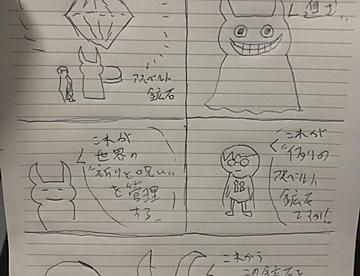 博士
アスベルト
鉱石
これが
"祈りの
アスベルト
鉱石
ですか!!
これが
世界の
"祈りと呪い"
を管理
する。
これから
この鉱石を